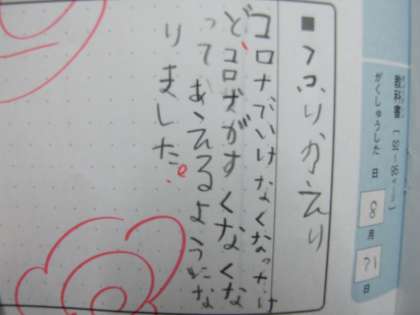 教科書
がくしゅうした日 8月21日
■ふりかえり
コロナでいけなくなったけ
ど、コロナがすくなくな
ってあえるようにな
りました。